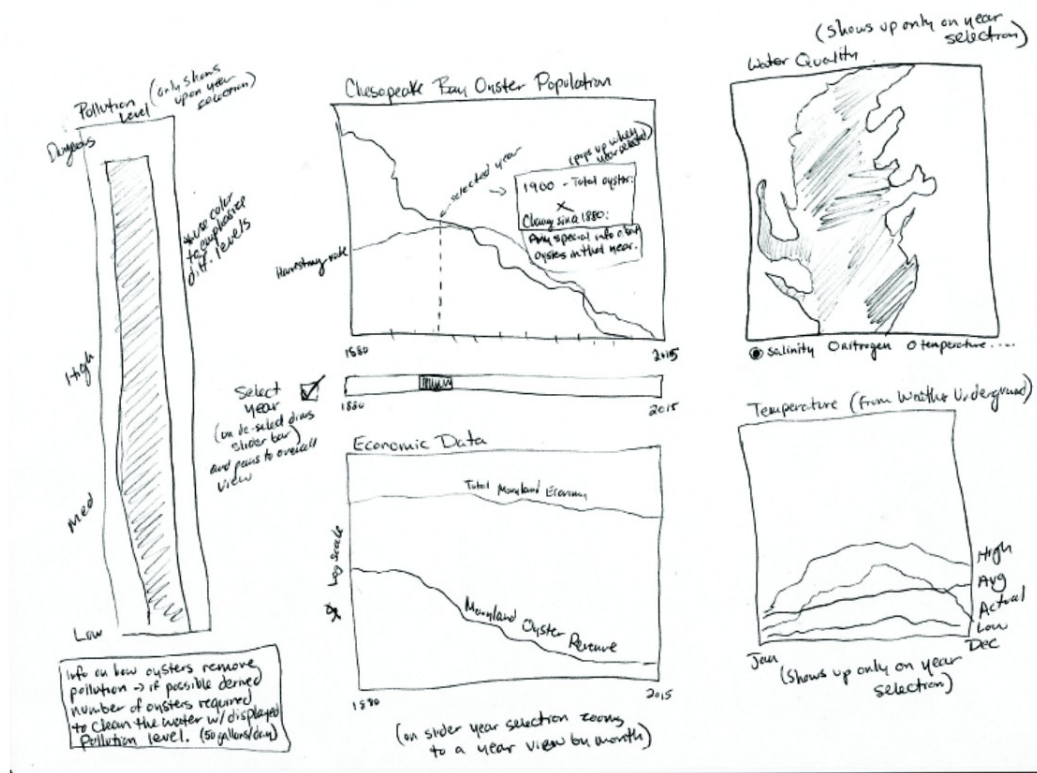 Pollution Level
(only shows
upon year
selection)
Dangerous
High
Med
Low
* use color
to emphasize
diff. levels
Info on how oysters remove
pollution -> if possible derived
number of oysters required
to clean the water w/ displayed
Pollution level. (50 gallons/day)
Chesapeake Bay Oyster Population
Harvesting rate
selected year
(pops up when
year selected)
1900 - Total oysters:
X
Change since 1880:
Any special info about
oysters in that year.
1880
2015
Select
year
(on de-select dims
slider bar)
and pans to overall
view
1880
2015
Economic Data
Log scale
Total Maryland Economy
Maryland Oyster Revenue
1880
2015
(on slider year selection zooms
to a year view by month)
(shows up only on year
selection)
Water Quality
salinity nitrogen temperature.....
Temperature (from Weather Underground)
High
Avg
Actual
Low
Jan
Dec
(Shows up only on year
selection)